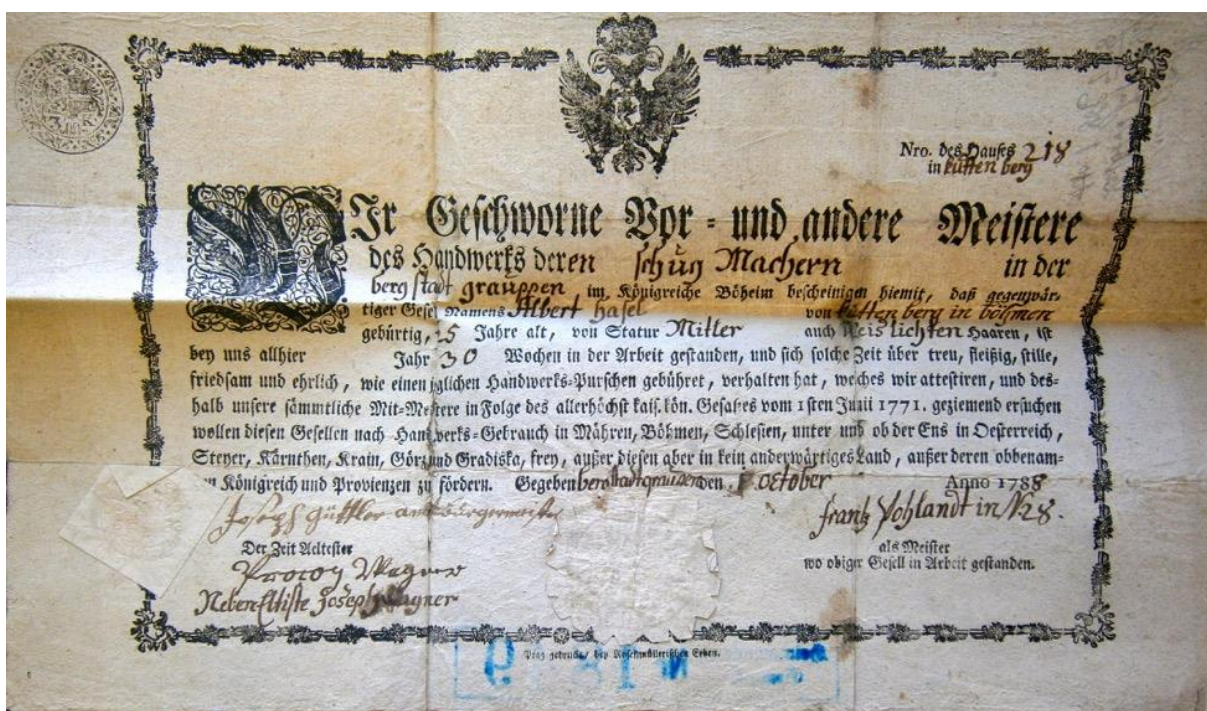 Nro. des Hauses 218
in kütten berg
WIr Geschworne Vor- und andere Meistere
des Handwerks deren schug Machern in der
berg stadt grauppen im Königreiche Böheim bescheinigen hiemit, daß gegenwär-
tiger Gesel Namens Albert hasel von kütten berg in böhmen
gebürtig, 25 Jahre alt, von Statur Mitler auch lichten Haaren, ist
bey uns allhier Jahr 30 Wochen in der Arbeit gestanden, und sich solche Zeit über treu, fleißig, stille,
friedsam und ehrlich, wie einen jglichen Handwerks-Purschen gebühret, verhalten hat, welches wir attestiren, und des-
halb unsere sämmtliche Mit-Meistere in Folge des allerhöchst kais. kön. Gesatzes vom 1sten Junii 1771. geziemend ersuchen
wollen diesen Gesellen nach Handwerks-Gebrauch in Mähren, Böhmen, Schlesien, unter und ob der Ens in Oesterreich,
Steyer, Kärnthen, Krain, Görz und Gradiska, frey, außer diesen aber in kein anderwärtiges Land, außer deren obbenam-
Königreich und Provienzen zu fördern. Gegeben den 1 october Anno 1788
Joseph güttler frantz Pohlandt in N 28.
Der Zeit Aeltester als Meister
Procop Wagner wo obiger Gesell in Arbeit gestanden.
Neben Eltiste Joseph Wagner
Prag gedruckt, bey Rosenmüllerischen Erben.